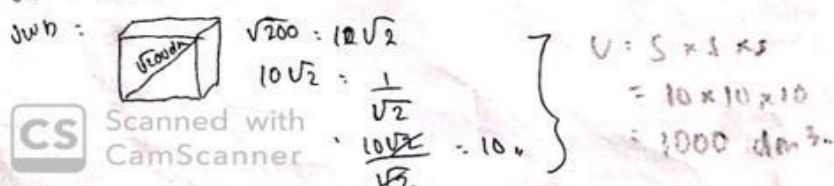 Jwb :
√200 dm
√200 : 10√2
10√2 : 1/√2
: 10√2/√2 = 10 "
V : S x S x s
= 10 x 10 x 10
: 1000 dm³ "
CS Scanned with CamScanner